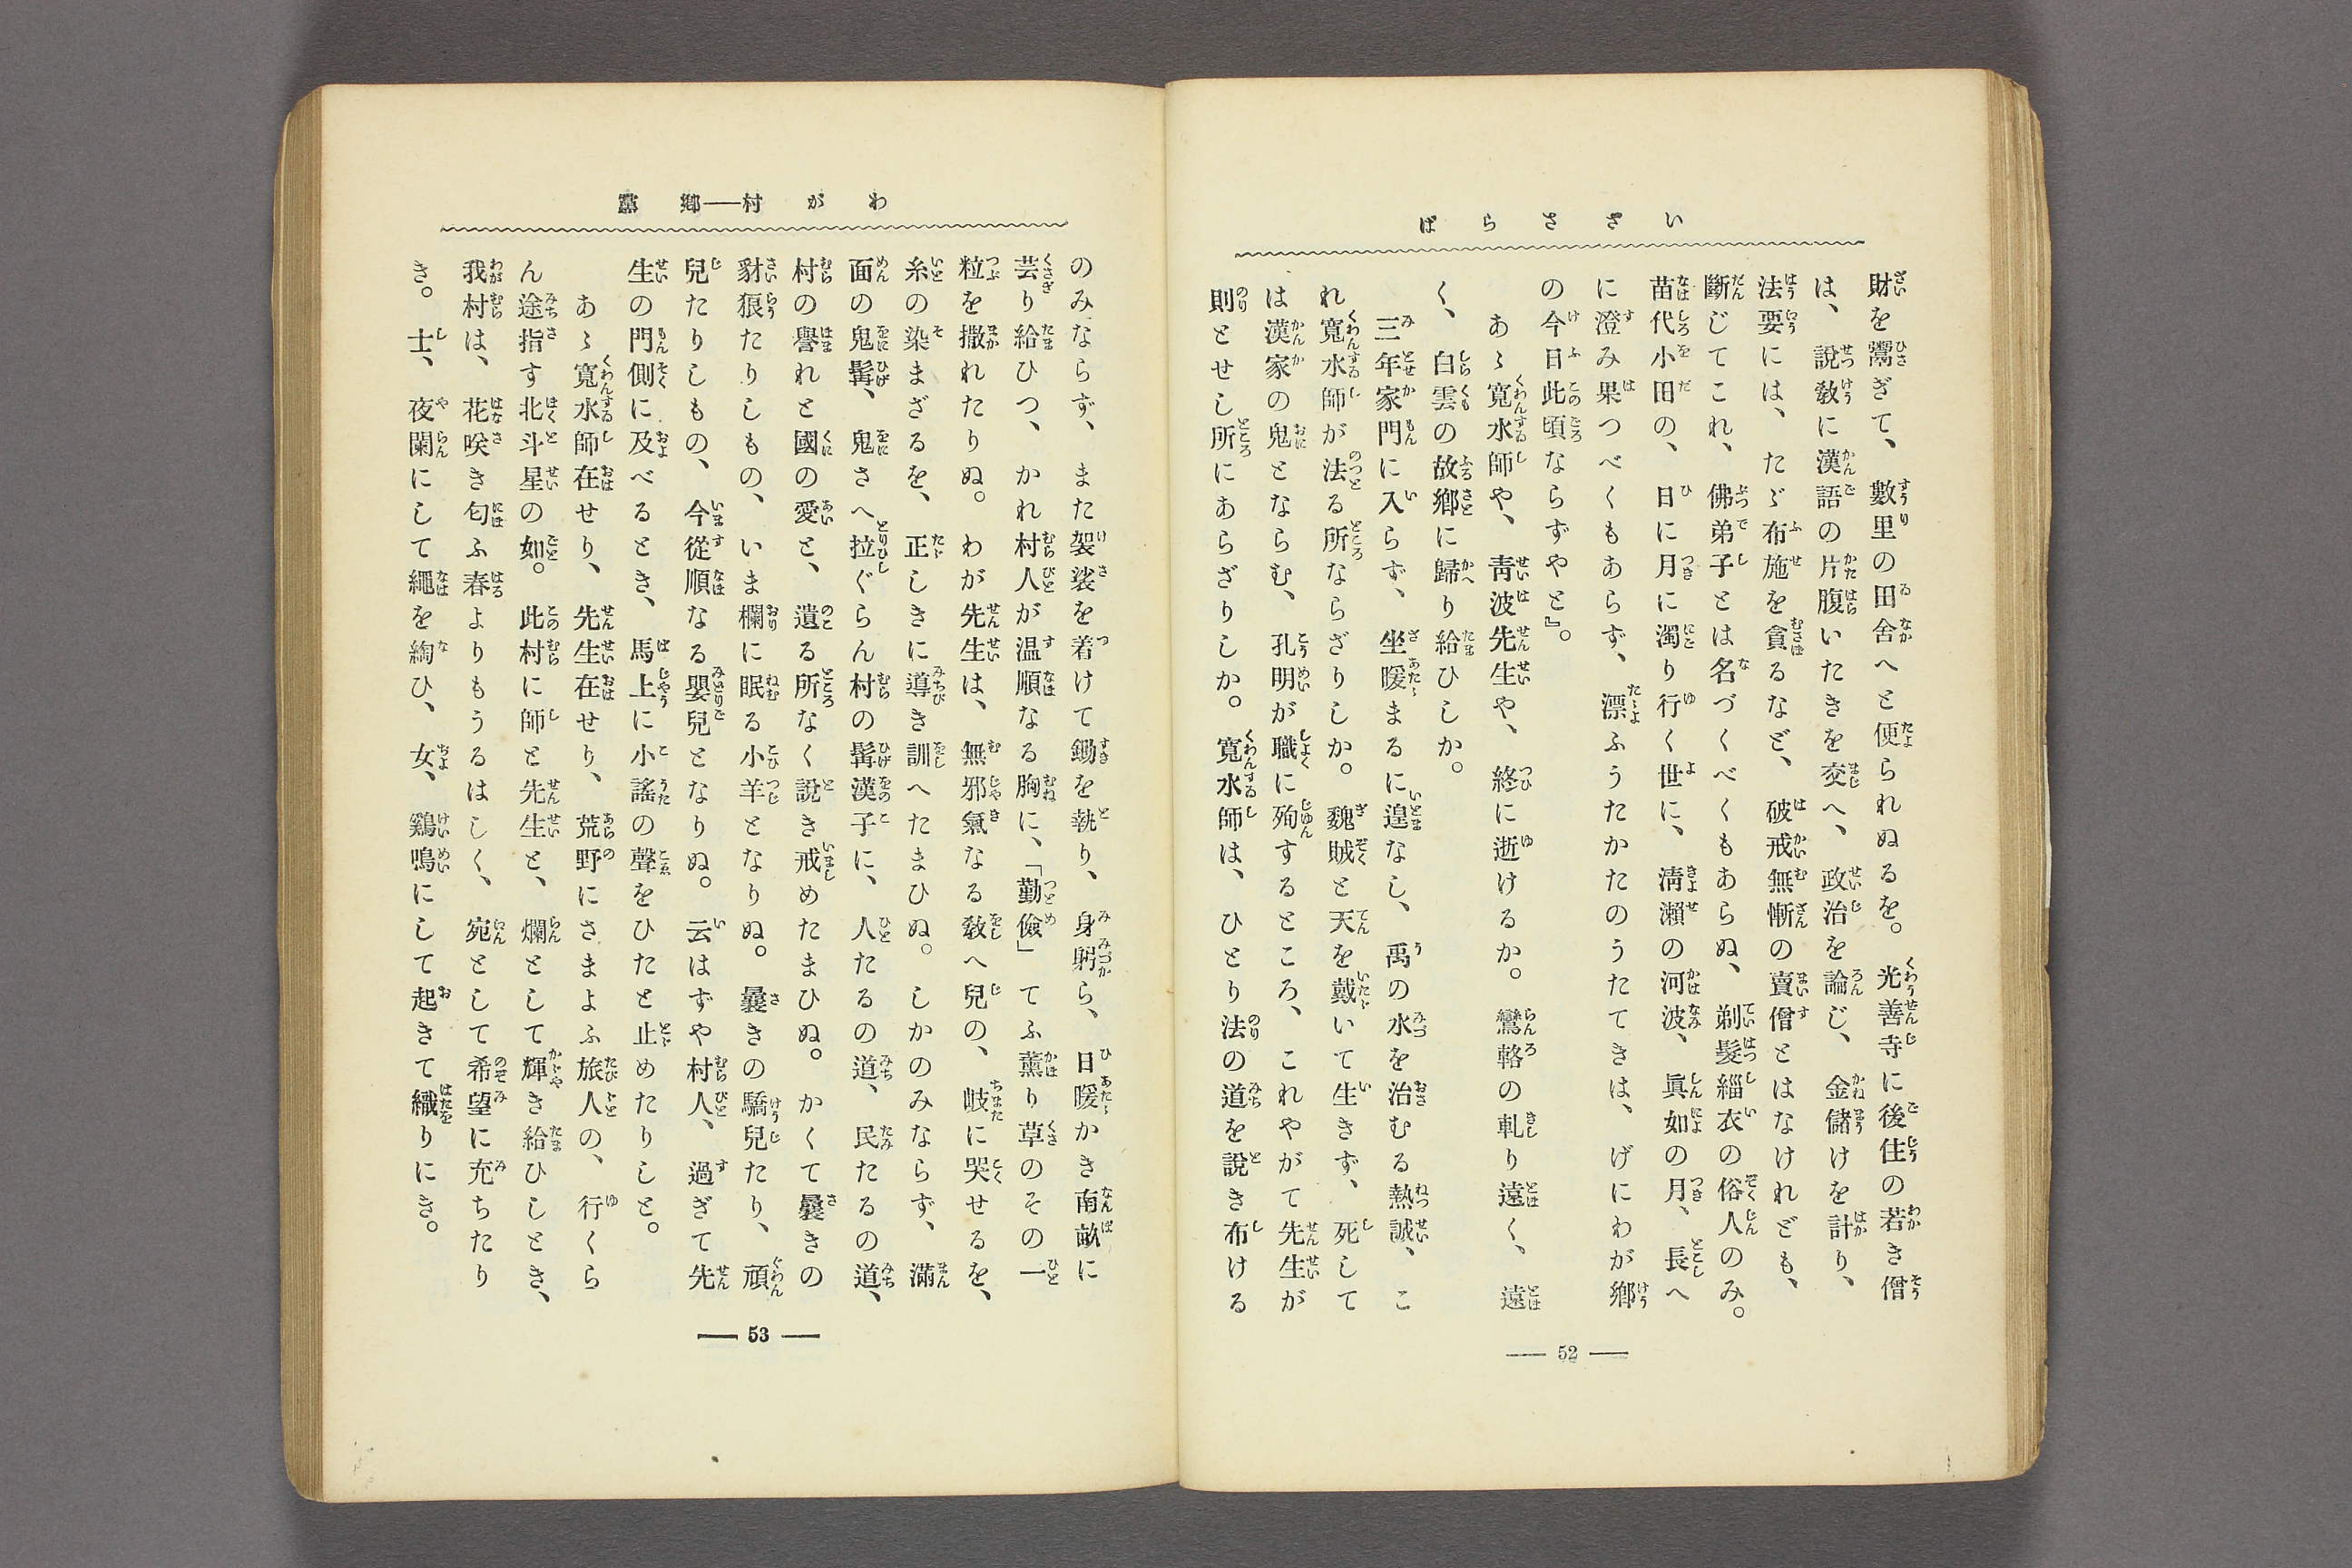 いささらば
財を鬻ぎて、數里の田舍へと便られぬるを。光善寺に後住の若き僧
は、說敎に漢語の片腹いたきを交へ、政治を論じ、金儲けを計り、
法要には、たゞ布施を貪るなど、破戒無慚の賣僧とはなけれども、
斷じてこれ、佛弟子とは名づくべくもあらぬ、剃髮緇衣の俗人のみ。
苗代小田の、日に月に濁り行く世に、淸瀨の河波、眞如の月、長へ
に澄み果つべくもあらず、漂ふうたかたのうたてきは、げにわが鄕
の今日此頃ならずやと』。
あゝ寬水師や、靑波先生や、終に逝けるか。鸞輅の軋り遠く、遠
く、白雲の故鄕に歸り給ひしか。
三年家門に入らず、坐暖まるに遑なし、禹の水を治むる熱誠、こ
れ寬水師が法る所ならざりしか。魏賊と天を戴いて生きず、死して
は漢家の鬼とならむ、孔明が職に殉するところ、これやがて先生が
則とせし所にあらざりしか。寬水師は、ひとり法の道を說き布ける
52
わが村――鄕黨
のみならず、また袈裟を着けて鋤を執り、身躬ら、日暖かき南畝に
芸り給ひつ、かれ村人が温順なる胸に、「勤儉」てふ薰り草のその一
粒を撒かれたりぬ。わが先生は、無邪氣なる敎へ兒の、岐に哭せるを、
糸の染まざるを、正しきに導き訓へたまひぬ。しかのみならず、滿
面の鬼髯、鬼さへ拉ぐらん村の髯漢子に、人たるの道、民たるの道、
村の譽れと國の愛と、遺る所なく說き戒めたまひぬ。かくて曩きの
豺狼たりしもの、いま欄に眠る小羊となりぬ。曩きの驕兒たり、頑
兒たりしもの、今從順なる嬰兒となりぬ。云はずや村人、過ぎて先
生の門側に及べるとき、馬上に小謠の聲をひたと止めたりしと。
あゝ寬水師在せり、先生在せり、荒野にさまよふ旅人の、行くら
ん途指す北斗星の如。此村に師と先生と、爛として輝き給ひしとき、
我村は、花咲き匂ふ春よりもうるはしく、宛として希望に充ちたり
き。士、夜闌にして繩を綯ひ、女、鷄鳴にして起きて織りにき。
53